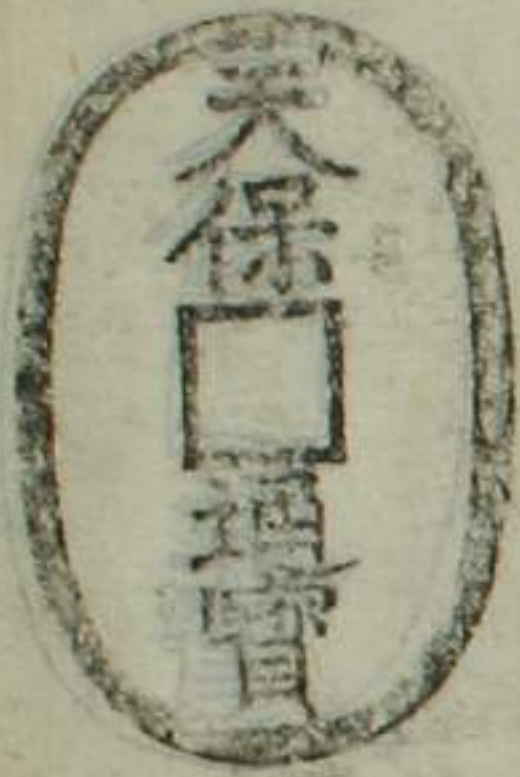 天保
通寳